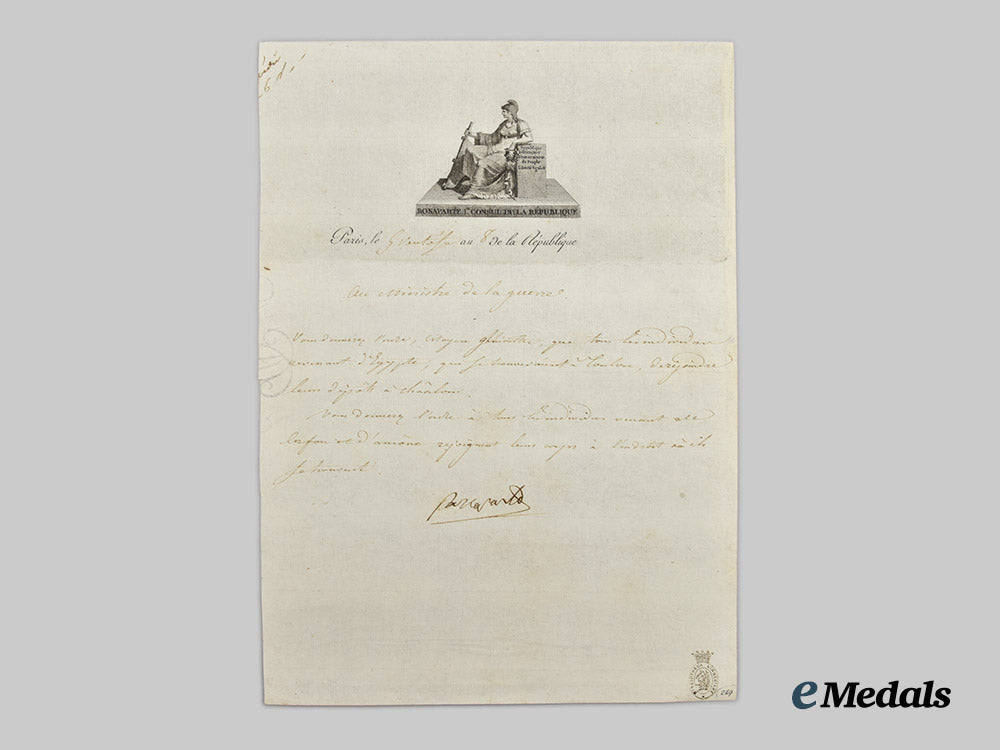 République
française
du Peuple
BONAPARTE 1er CONSUL DE LA RÉPUBLIQUE
Paris, le 9 Ventôse au 8 de la République
au Ministre de la guerre.
Vous donnerez l'ordre, citoyen Ministre, que tous les individus
venant d'Égypte, qui se trouveraient à Toulon, de rejoindre
leurs dépôts à
Vous donnerez l'ordre à tous les individus venant de
Corfou et d'ancône, rejoignent leurs corps à l'endroit où ils
se trouvent.
Bonaparte
269
eMedals